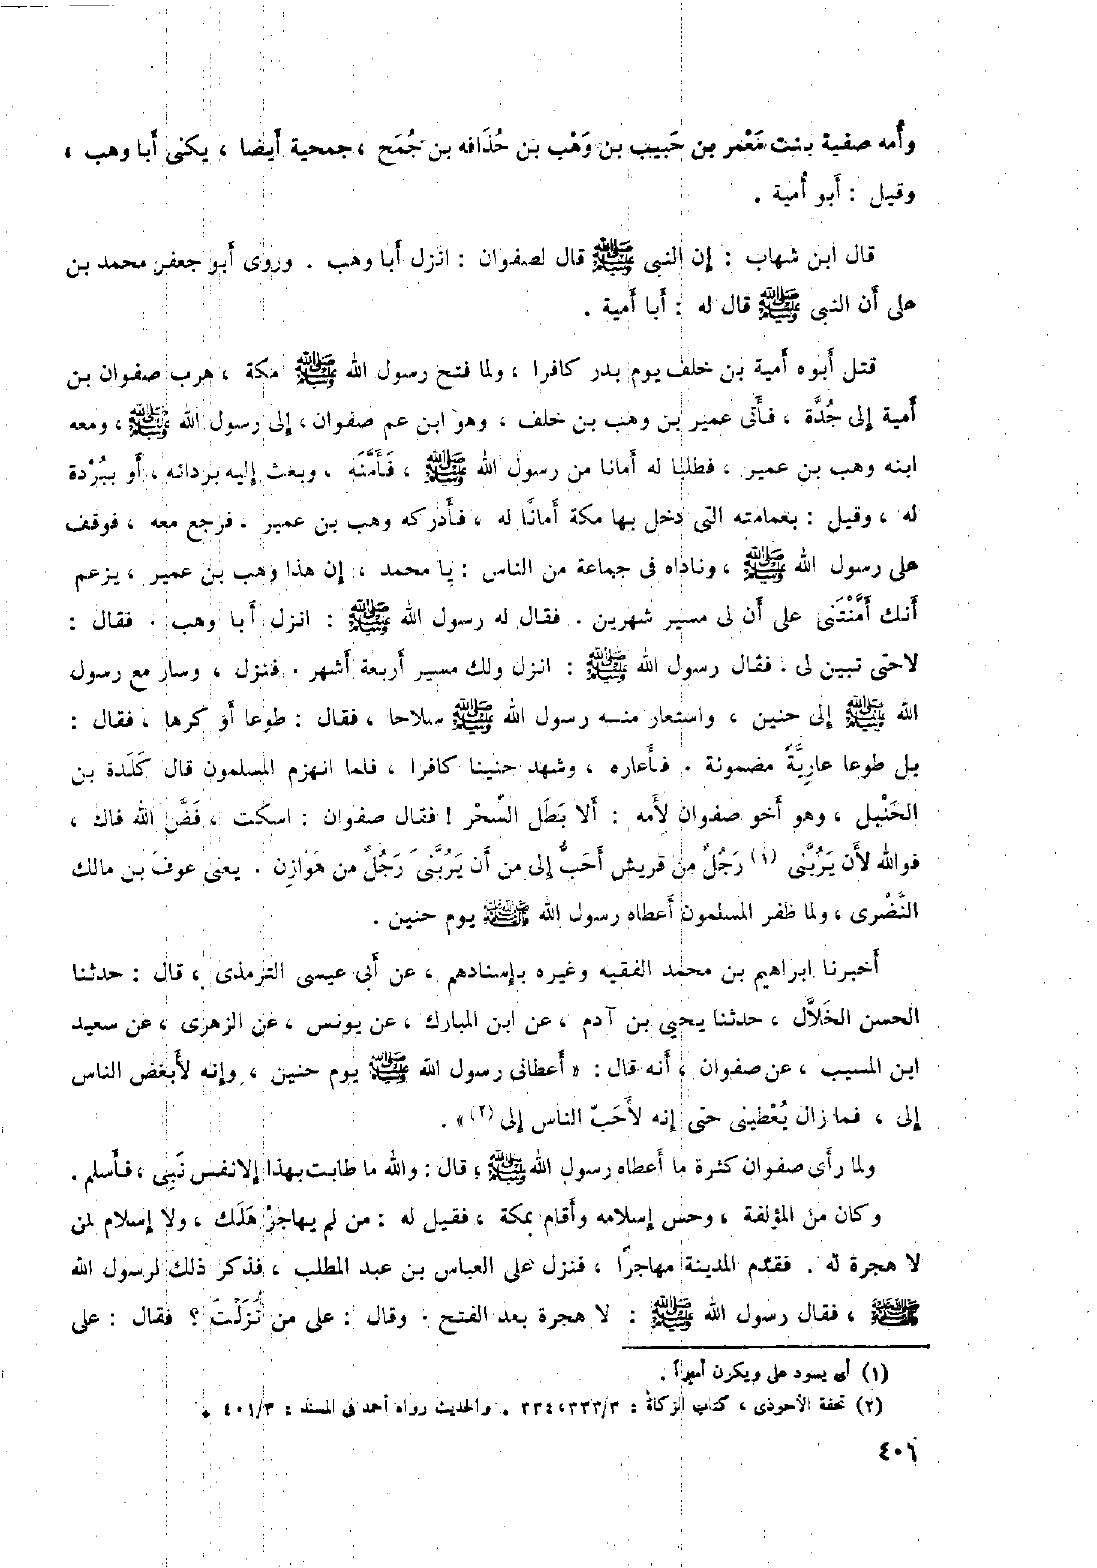 وأُمه صفية بنت مَعْمر بن حَبيب بن وَهْب بن حُذَافه بن جُمَح ، جمحية أَيضا ، يكنى أَبا وهب ،
وقيل : أَبو أُمية .
قال ابن شهاب : إِن النبى ﷺ قال لصفوان : انزل أَبا وهب . وروى أَبو جعفر محمد بن
على أَن النبى ﷺ قال له : أَبا أُمية .
قتل أَبوه أُمية بن خلف يوم بدر كافرا ، ولما فتح رسول الله ﷺ مكة ، هرب صفوان بن
أُمية إِلى جُدَّة ، فأَتى عمير بن وهب بن خلف ، وهو ابن عم صفوان ، إِلى رسول الله ﷺ ، ومعه
ابنه وهب بن عمير ، فطلبا له أَمانا من رسول الله ﷺ ، فَأَمَّنَه ، وبعث إِليه بردائه ، أَو ببُرْدة
له ، وقيل : بعمامته التى دخل بها مكة أَمانًا له ، فأَدركه وهب بن عمير . فرجع معه ، فوقف
على رسول الله ﷺ ، وناداه فى جماعة من الناس : يا محمد ، إِن هذا وهب بن عمير ، يزعم
أَنك أَمَّنْتَنى على أَن لى مسير شهرين . فقال له رسول الله ﷺ : انزل أَبا وهب . فقال :
لا حتى تبين لى . فقال رسول الله ﷺ : انزل ولك مسير أَربعة أَشهر . فنزل ، وسار مع رسول
الله ﷺ إِلى حنين ، واستعار منه رسول الله ﷺ سلاحا ، فقال : طوعا أَو كرها ، فقال :
بل طوعا عارِيَّةً مضمونة . فأَعاره ، وشهد حنينا كافرا ، فلما انهزم المسلمون قال كَلَدة بن
الحَنْبل ، وهو أَخو صفوان لأُمه : أَلا بَطَل السِّحْر ! فقال صفوان : اسكت ، فَضَّ الله فاك ،
فوالله لأَن يَرُبَّنى (١) رَجُلٌ من قريش أَحَبُّ إِلى من أَن يَرُبَّنىَ رَجُلٌ من هَوَازِن . يعنى عوفَ بن مالك
النَّضْرى ، ولما ظفر المسلمون أَعطاه رسول الله ﷺ يوم حنين .
أَخبرنا إبراهيم بن محمد الفقيه وغيره بإِسنادهم ، عن أَبى عيسى الترمذى ، قال : حدثنا
الحسن الخَلاَّل ، حدثنا يحيى بن آدم ، عن ابن المبارك ، عن يونس ، عن الزهرى ، عن سعيد
ابن المسيب ، عن صفوان ، أَنه قال : « أَعطانى رسول الله ﷺ يوم حنين ، وإِنه لأَبغض الناس
إِلى ، فما زال يُعْطينى حتى إِنه لأَحَبّ الناس إِلى (٢) » .
ولما رأَى صفوان كثرة ما أَعطاه رسول الله ﷺ ، قال : والله ما طابت بهذا إِلا نفس نَبِى ، فأَسلم .
وكان من المؤلفة ، وحسن إِسلامه وأَقام بمكة ، فقيل له : من لم يهاجِرْ هَلَك ، ولا إِسلام لمن
لا هجرة له . فقدم المدينة مهاجرًا ، فنزل على العباس بن عبد المطلب ، فذكر ذلك لرسول الله
ﷺ ، فقال رسول الله ﷺ : لا هجرة بعد الفتح . وقال : على من نَزَلْتَ ؟ فقال : على
(١) أى يسود على ويكون أميراً .
(٢) تحفة الأحوذى ، كتاب الزكاة : ٣/٣٣٣ ، ٣٣٤ . والحديث رواه أحمد فى المسند : ٣/٤٠١ .
٤٠٦